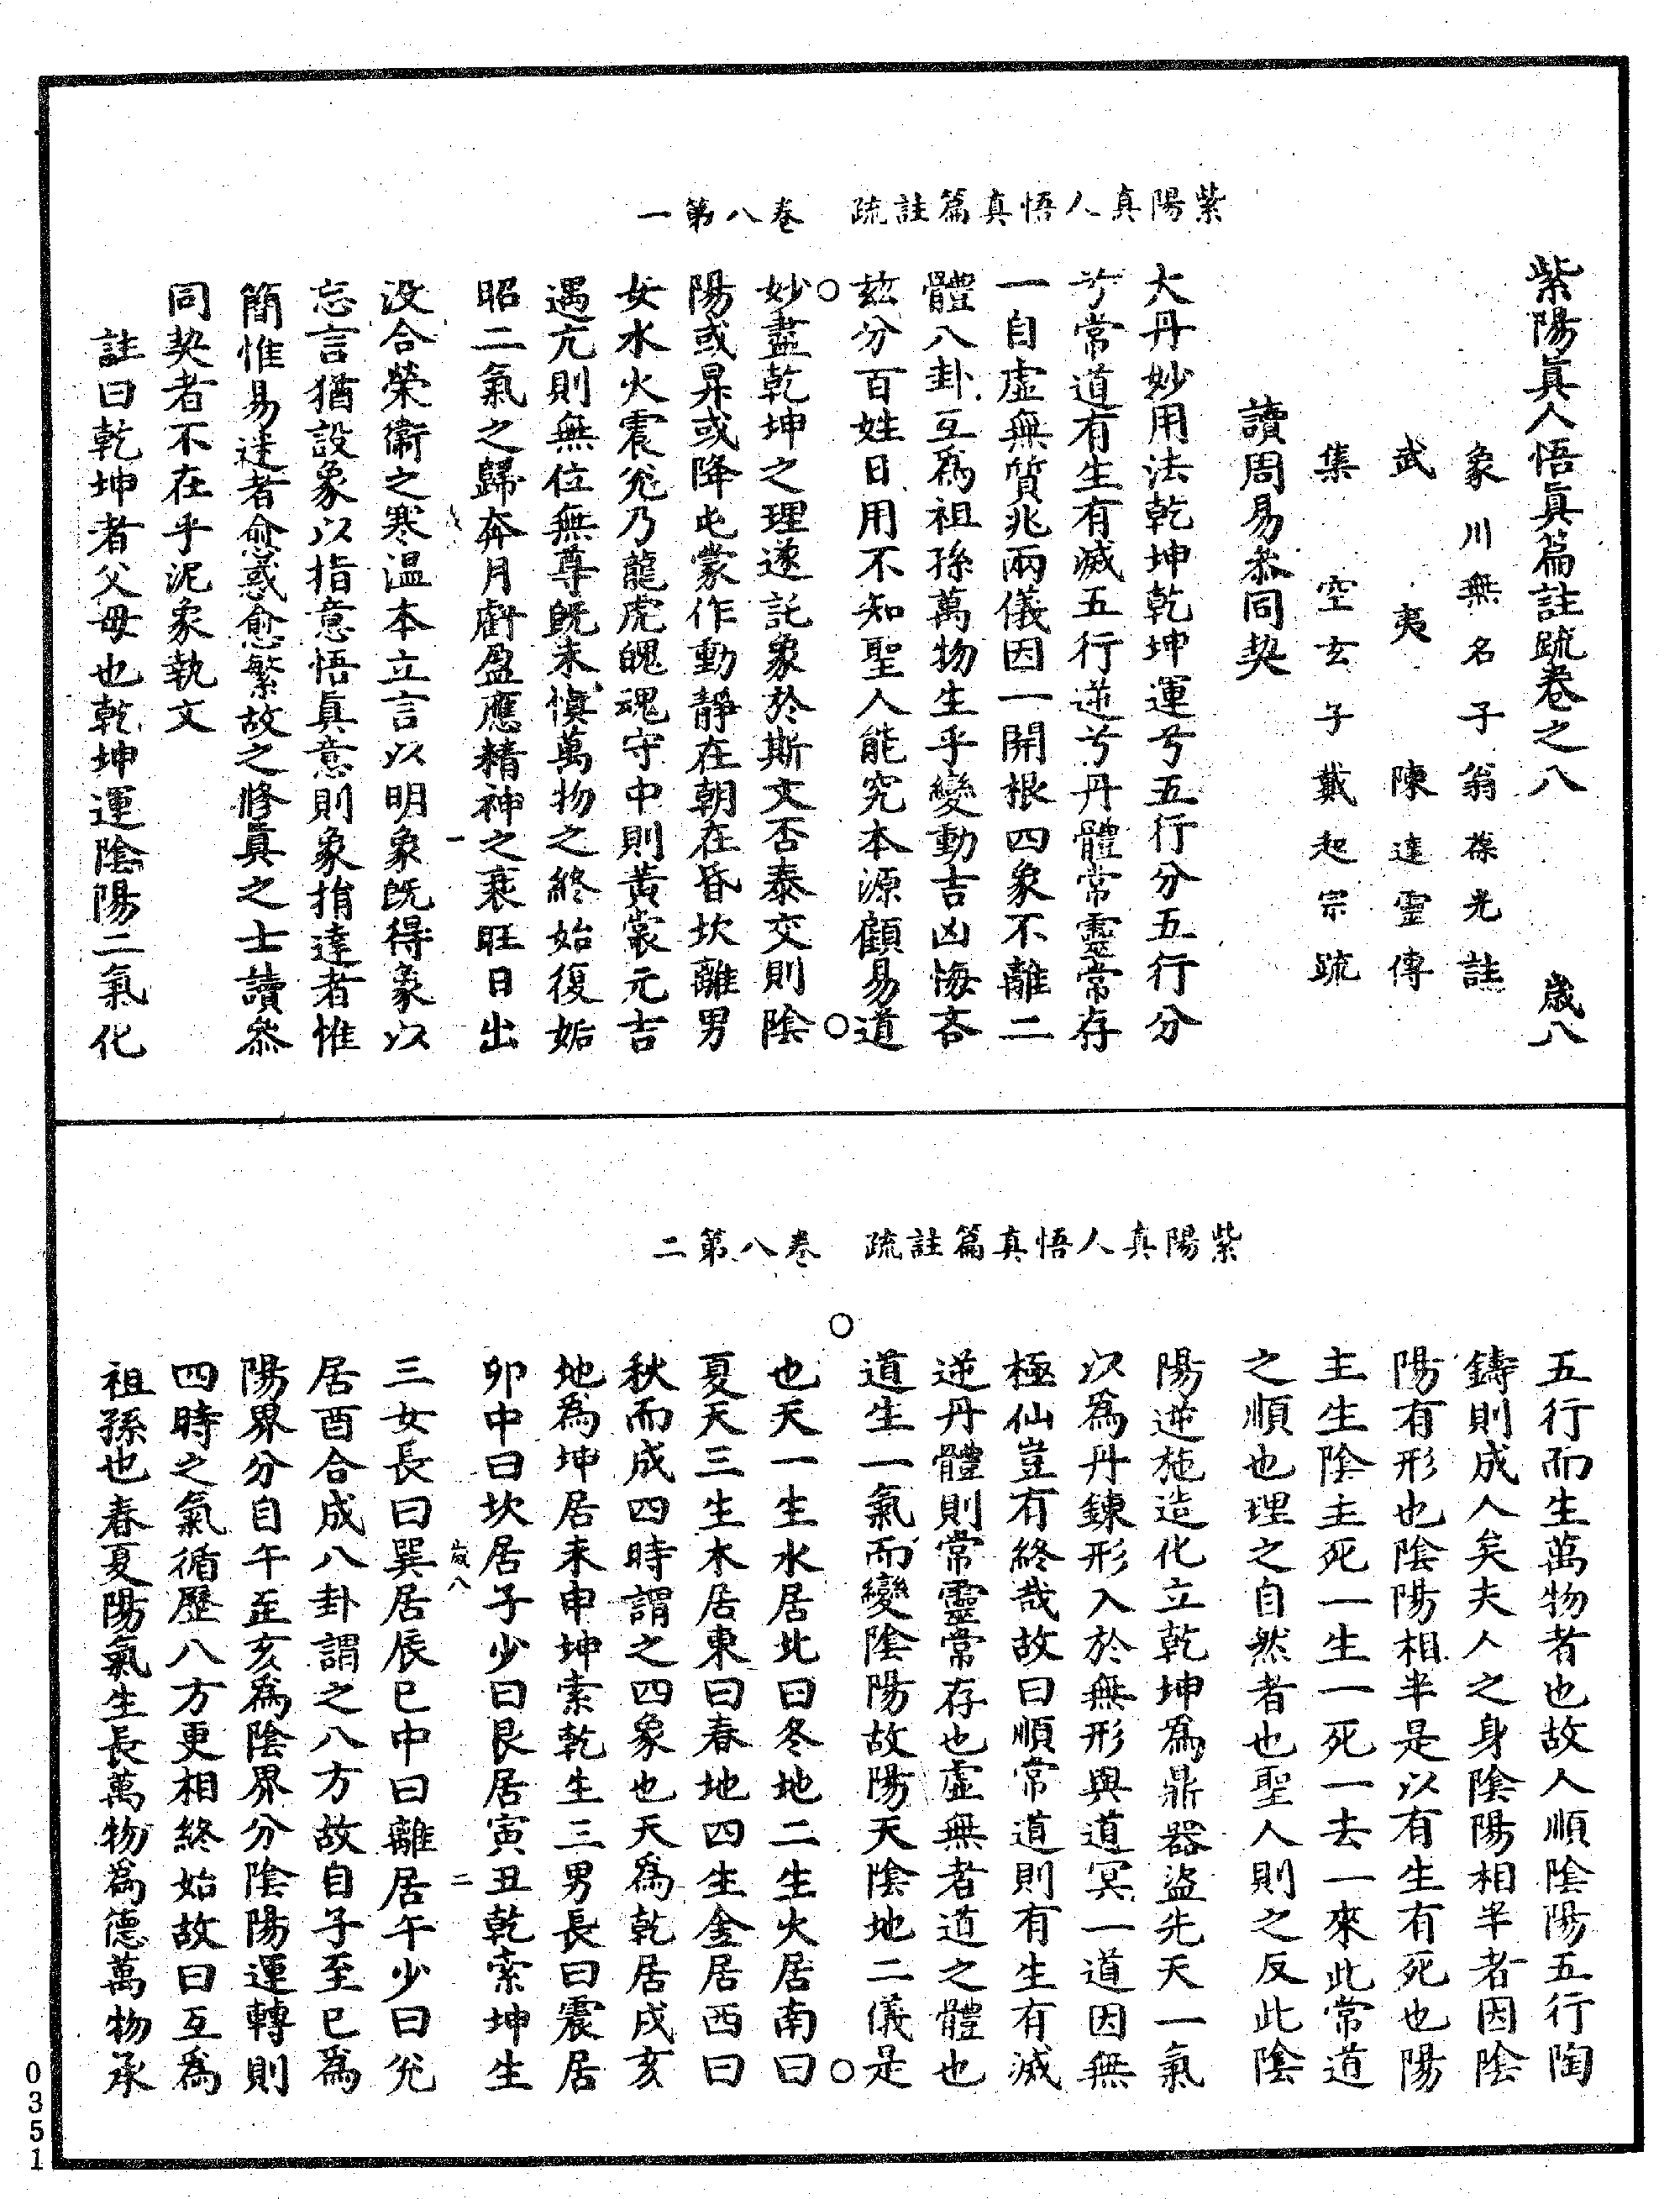 紫陽真人悟真篇註疏　卷八第一
紫陽眞人悟眞篇註䟽卷之八　歲八
象川無名子翁葆光註
武夷陳達靈傳
集空玄子戴起宗䟽
讀周易叅同契
大丹妙用法乾坤乾坤運兮五行分五行分
兮常道有生有滅五行逆兮丹體常靈常存
一自虛無質兆兩儀因一開根四象不離二
體八卦互爲祖孫萬物生乎變動吉凶悔吝
玆分百姓日用不知聖人能究本源顧易道
妙盡乾坤之理遂託象於斯文否泰交則陰
陽或昇或降屯蒙作動靜在朝在昏坎離男
女水火震兊乃龍虎魄魂守中則黃裳元吉
遇亢則無位無尊旣未慎萬物之終始復姤
昭二氣之歸奔月虧盈應精神之衰旺日出
没合榮衞之寒温本立言以明象旣得象以
忘言猶設象以指意悟眞意則象捐達者惟
簡惟易迷者愈惑愈繁故之修眞之士讀叅
同契者不在乎泥象執文
註曰乾坤者父母也乾坤運陰陽二氣化
一
紫陽真人悟真篇註疏　卷八第二
五行而生萬物者也故人順陰陽五行陶
鑄則成人矣夫人之身陰陽相半者因陰
陽有形也陰陽相半是以有生有死也陽
主生陰主死一生一死一去一來此常道
之順也理之自然者也聖人則之反此陰
陽逆施造化立乾坤爲鼎器盜先天一氣
以爲丹鍊形入於無形與道冥一道因無
極仙豈有終哉故曰順常道則有生有滅
逆丹體則常靈常存也虛無者道之體也
道生一氣而變陰陽故陽天陰地二儀是
也天一生水居北曰冬地二生火居南曰
夏天三生木居東曰春地四生金居西曰
秋而成四時謂之四象也天爲乾居戌亥
地爲坤居未申坤索乾生三男長曰震居
卯中曰坎居子少曰艮居寅丑乾索坤生
歲八　二
三女長曰巽居辰巳中曰離居午少曰兊
居酉合成八卦謂之八方故自子至巳爲
陽界分自午至亥爲陰界分陰陽運轉則
四時之氣循歷八方更相終始故曰互爲
祖孫也春夏陽氣生長萬物爲德萬物承
0351